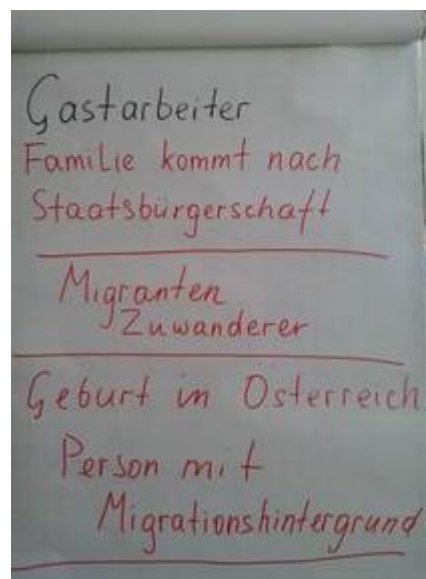 Gastarbeiter
Familie kommt nach
Staatsbürgerschaft
Migranten
Zuwanderer
Geburt in Österreich
Person mit
Migrationshintergrund